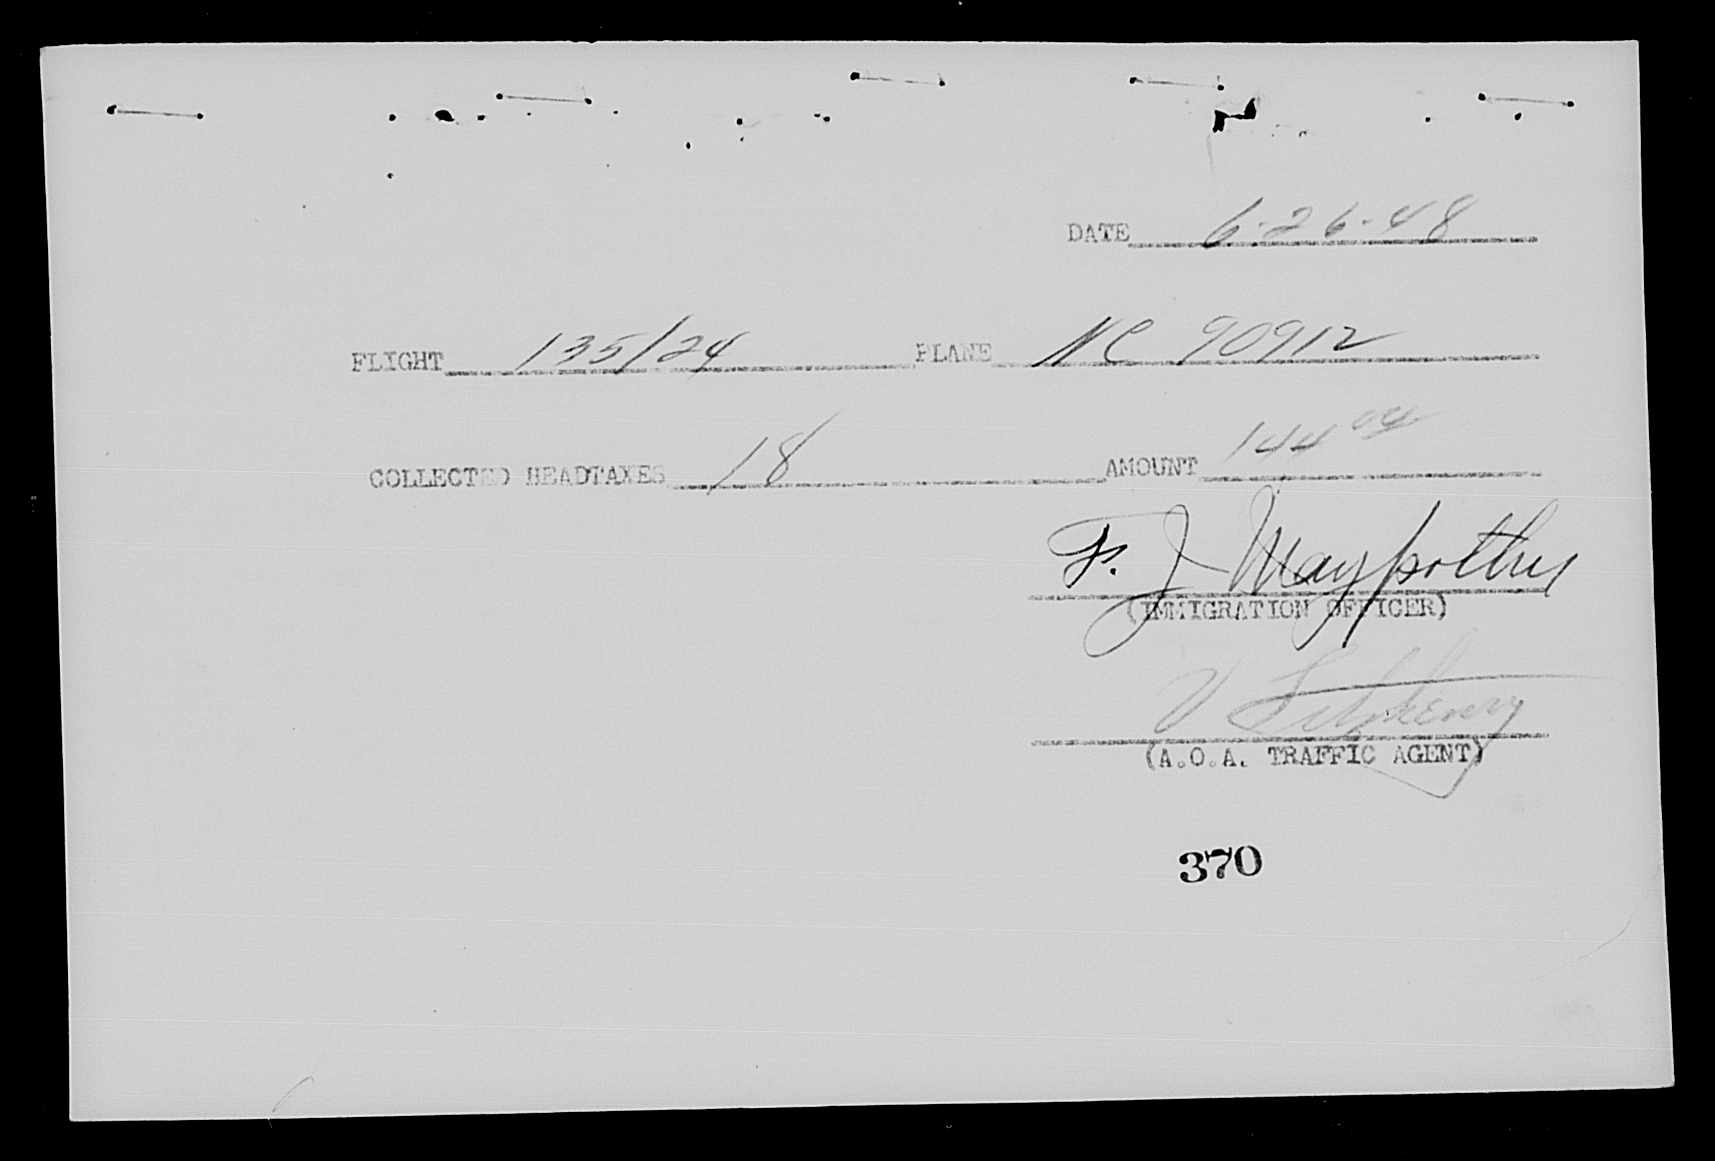 DATE 6-26-48
FLIGHT 135/24 PLANE NC 90912
COLLECTED HEADTAXES 18 AMOUNT 144 00
F. J. Maypother
(IMMIGRATION OFFICER)
V Fitzhenry
(A.O.A. TRAFFIC AGENT)
370